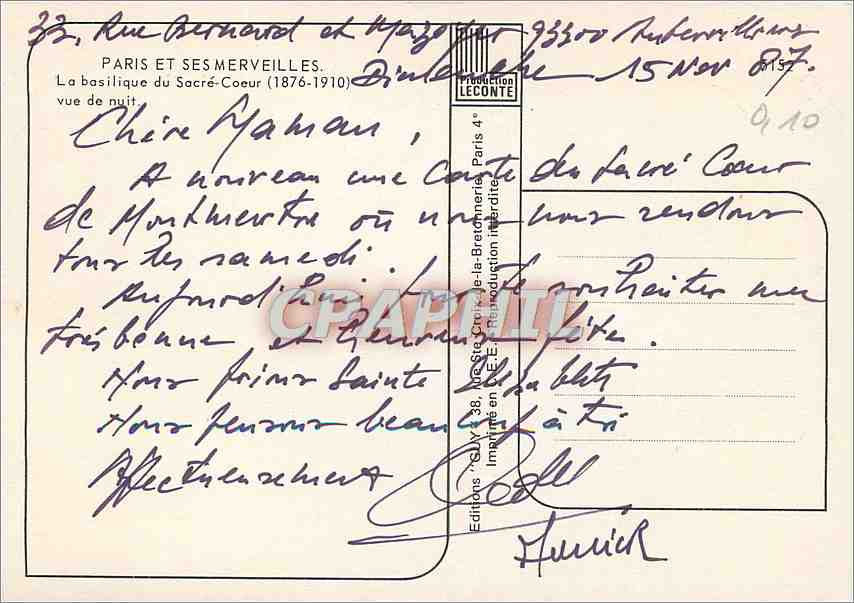 33, Rue Bernard et Mazoyer 93300 Aubervilliers
PARIS ET SES MERVEILLES.
La basilique du Sacré-Coeur (1876-1910)
vue de nuit.
Dimanche 15 Nov 87.
Production
LECONTE
0,10
Chère Maman,
A nouveau une carte du Sacré Cœur
de Montmartre où nous nous rendons
tous les samedi.
Aujourd'hui pour te souhaiter une
très bonne et heureuse fête.
Nous prions Sainte Elisabeth
Nous pensons beaucoup à toi
Affectueusement
Editions "GUY" 38, rue Ste-Croix-de-la-Bretonnerie, Paris 4°
Imprimé en C.E.E. Reproduction interdite
CPAPHIL